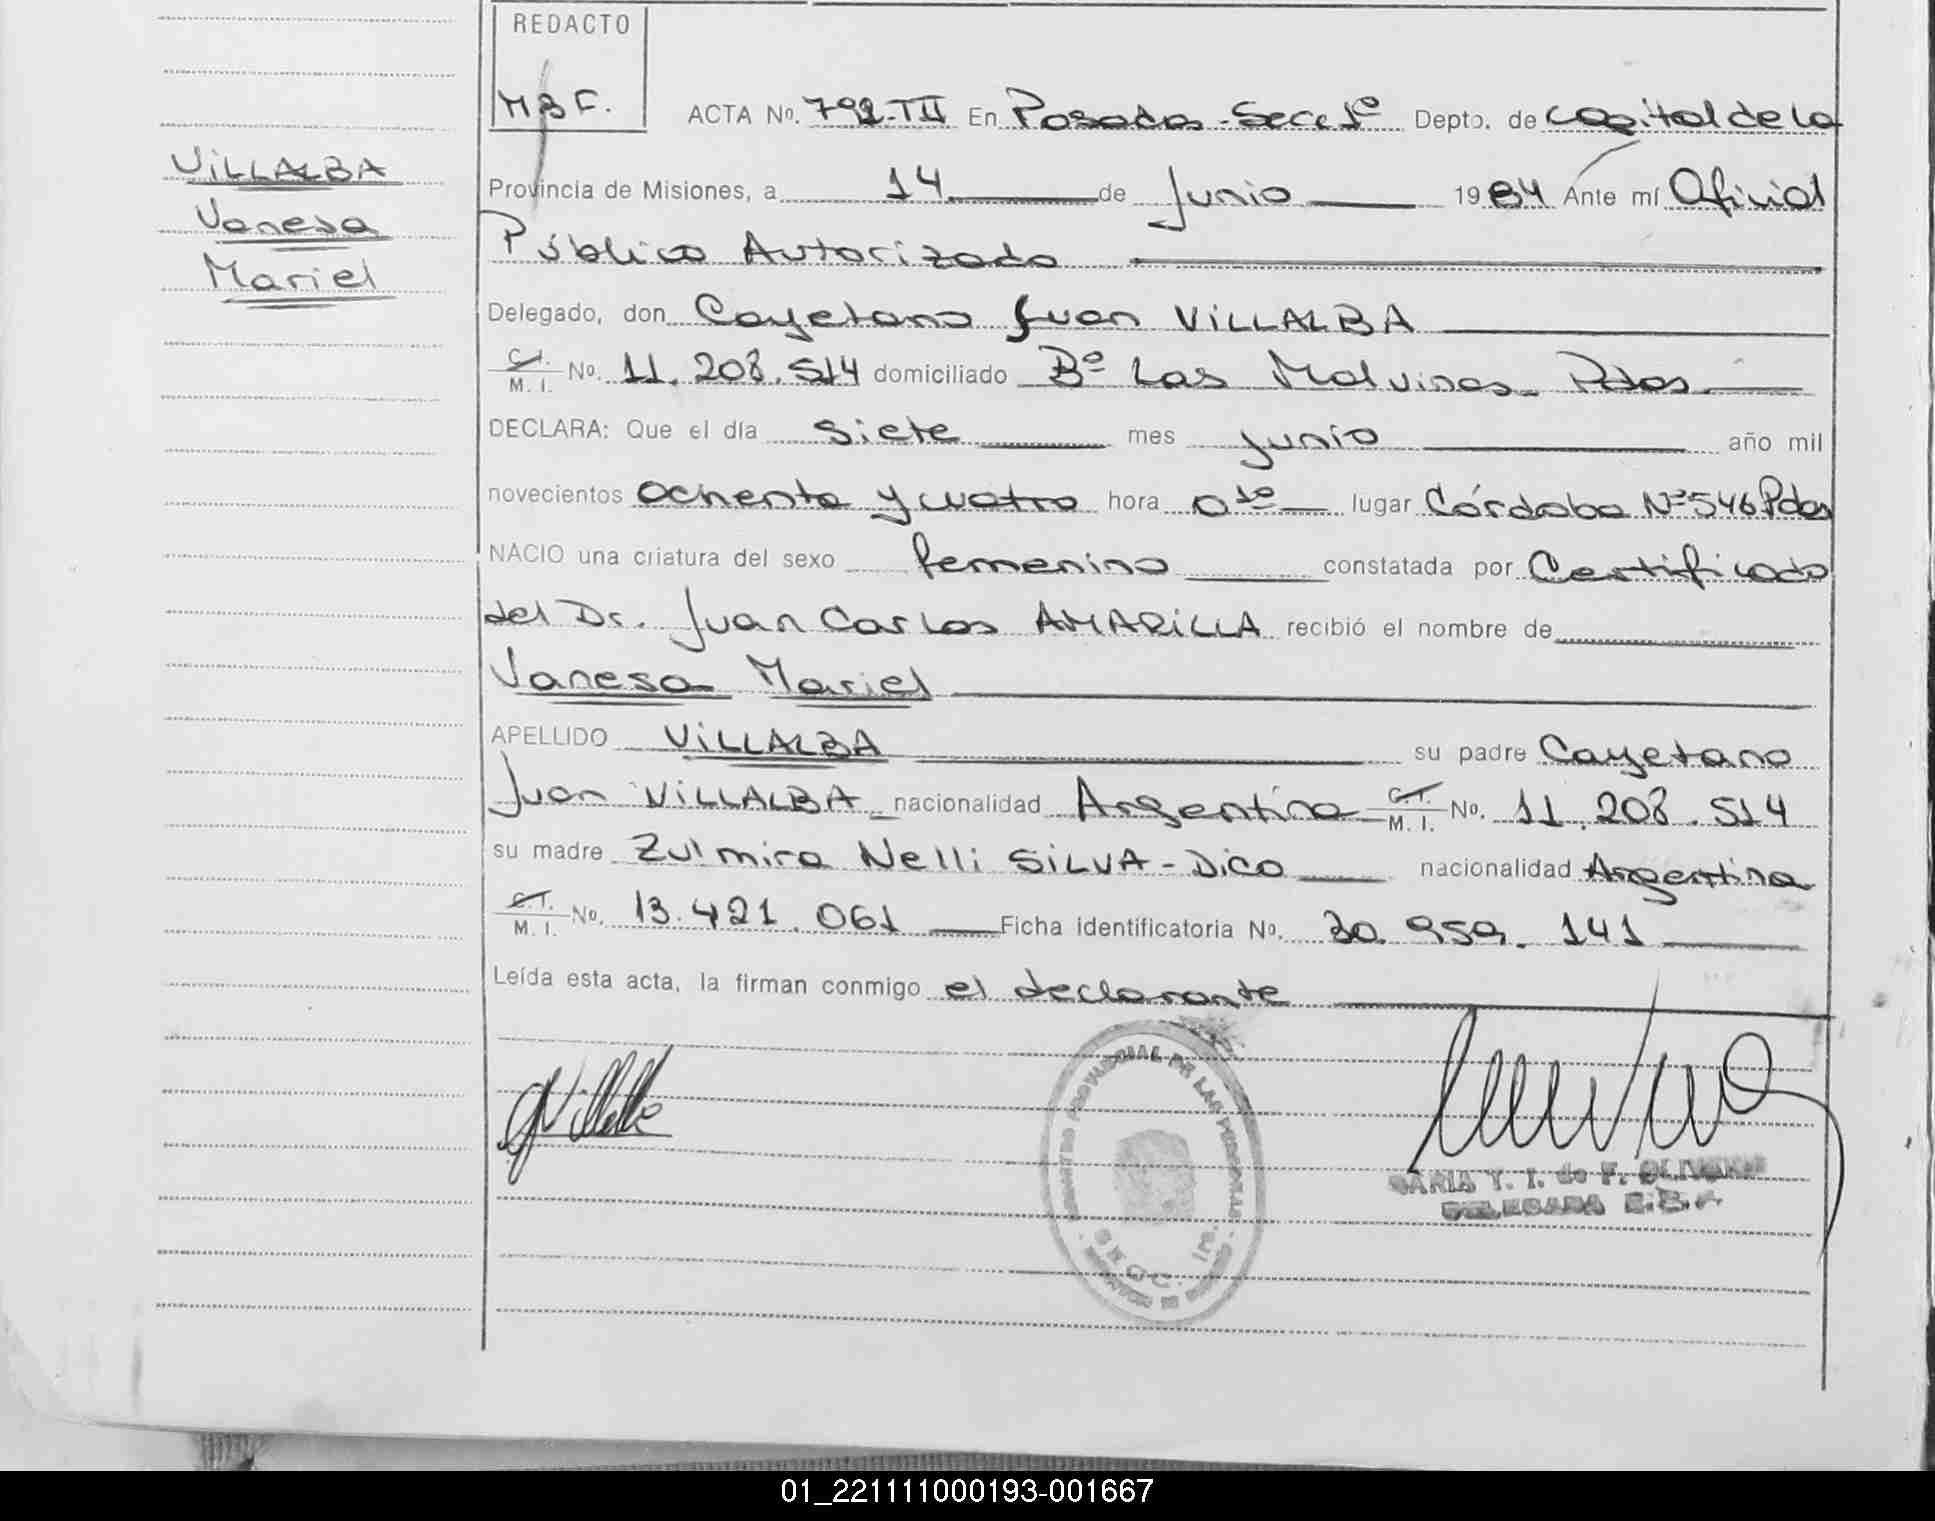 REDACTO
M B F.
ACTA Nº. 792-TII En Posadas - Secc 1º Depto. de Capital de la
VILLALBA
Vanesa
Mariel
Provincia de Misiones, a 14 de Junio 1984 Ante mí Oficial
Público Autorizado
Delegado, don Cayetano Juan VILLALBA
C.I. M. I. Nº. 11.208.514 domiciliado Bº Las Malvinas - Pdas.
DECLARA: Que el día siete mes junio año mil
novecientos ochenta y cuatro hora 0¹⁰ lugar Córdoba Nº 546 Pdas
NACIO una criatura del sexo femenino constatada por Certificado
del Dr. Juan Carlos AMARILLA recibió el nombre de
Vanesa Mariel
APELLIDO VILLALBA su padre Cayetano
Juan VILLALBA nacionalidad Argentina C.I. M. I. Nº. 11.208.514
su madre Zulmira Nelli SILVA - Dico nacionalidad Argentina
C.I. M. I. Nº. 13.421.061 Ficha identificatoria Nº. 30.959.141
Leída esta acta, la firman conmigo el declarante
PROVINCIAL DE LAS PERSONAS
SECC. 1ra.
MARIA Y. I. de F.
DELEGADA
01_221111000193-001667